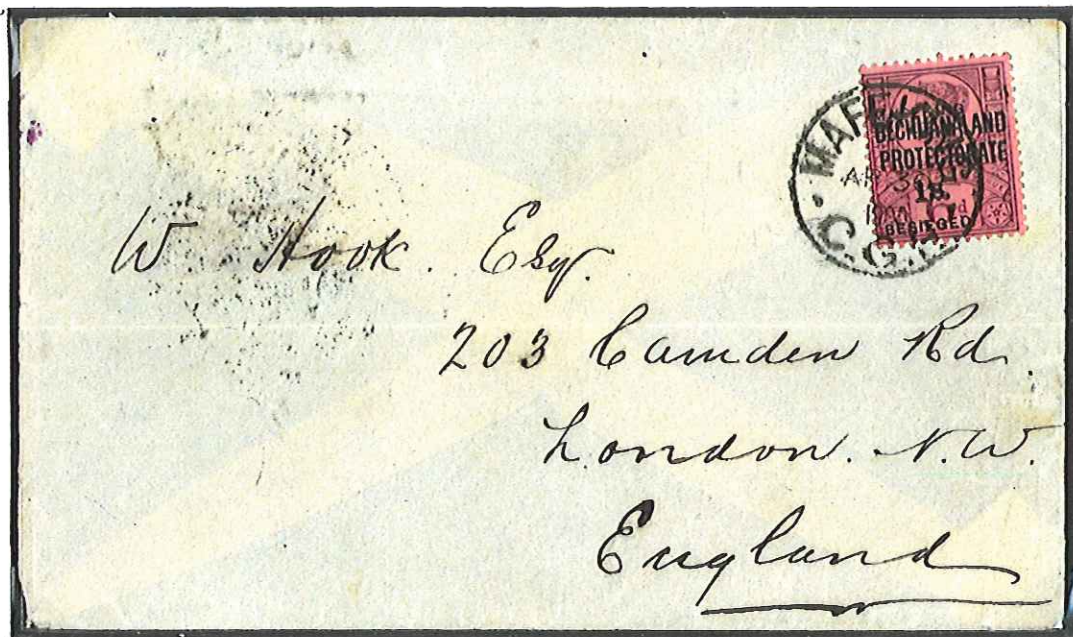 MAFEKING
BECHUANALAND
PROTECTORATE
1s.
BESIEGED
AP 30
1900
C.G.H.
W Hook. Esq.
203 Camden Rd.
London. N.W.
England